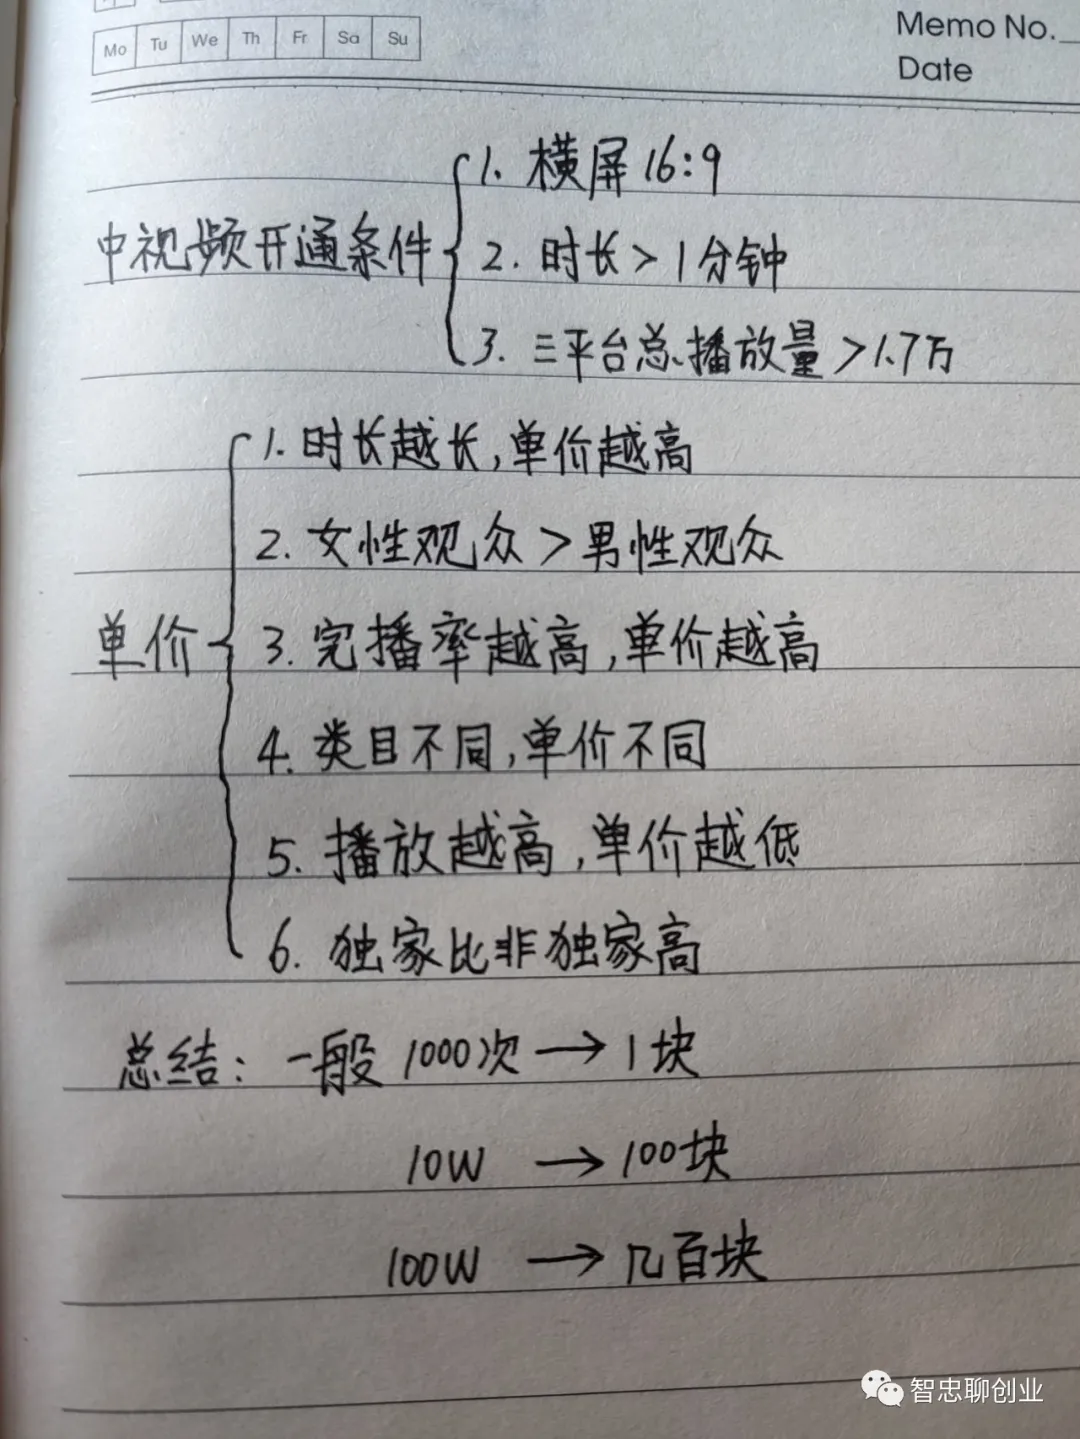 Mo Tu We Th Fr Sa Su
Memo No.
Date
中视频开通条件
1. 横屏 16:9
2. 时长 > 1分钟
3. 三平台总播放量 > 1.7万
单价
1. 时长越长,单价越高
2. 女性观众 > 男性观众
3. 完播率越高,单价越高
4. 类目不同,单价不同
5. 播放越高,单价越低
6. 独家比非独家高
总结: 一般 1000次 → 1块
10W → 100块
100W → 几百块
智忠聊创业